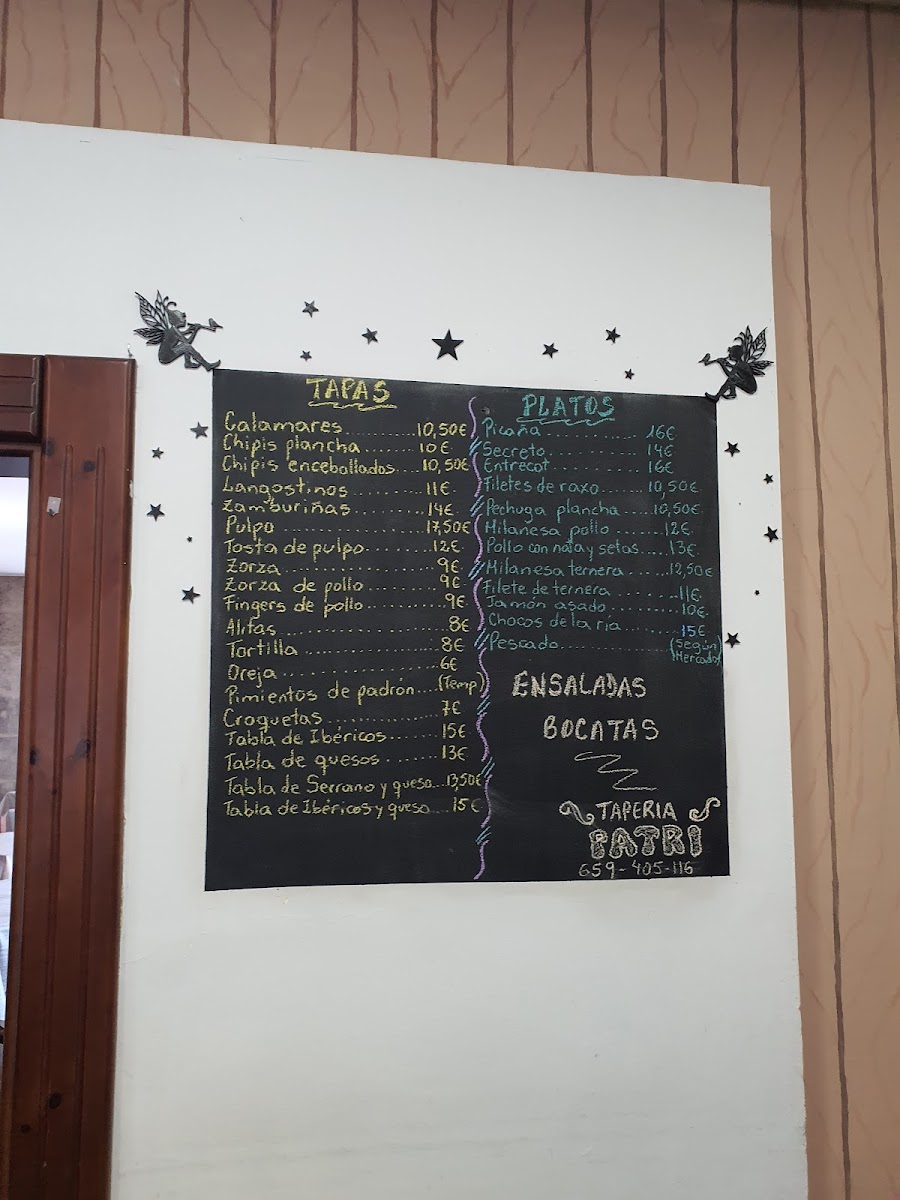 TAPAS
Calamares..............10,50€
Chipis plancha.........10€
Chipis encebollados....10,50€
Langostinos..........11€
Zamburiñas..........14€
Pulpo...............17,50€
Tosta de pulpo.........12€
Zorza...............9€
Zorza de pollo..........9€
Fingers de pollo.........9€
Alitas...............8€
Tortilla..............8€
Oreja...............6€
Pimientos de padrón....(Temp)
Croquetas............7€
Tabla de Ibéricos.......15€
Tabla de quesos.......13€
Tabla de Serrano y queso...13,50€
Tabla de Ibéricos y queso....15€
PLATOS
Picaña..............16€
Secreto.............14€
Entrecot............16€
Filetes de raxo.......10,50€
Pechuga plancha....10,50€
Milanesa pollo.......12€
Pollo con nata y setas....13€
Milanesa ternera.......12,50€
Filete de ternera........11€
Jamón asado..........10€
Chocos de la ria........15€
Pescado..............(Según
Mercado)
ENSALADAS
BOCATAS
TAPERIA
PATRI
659-405-116